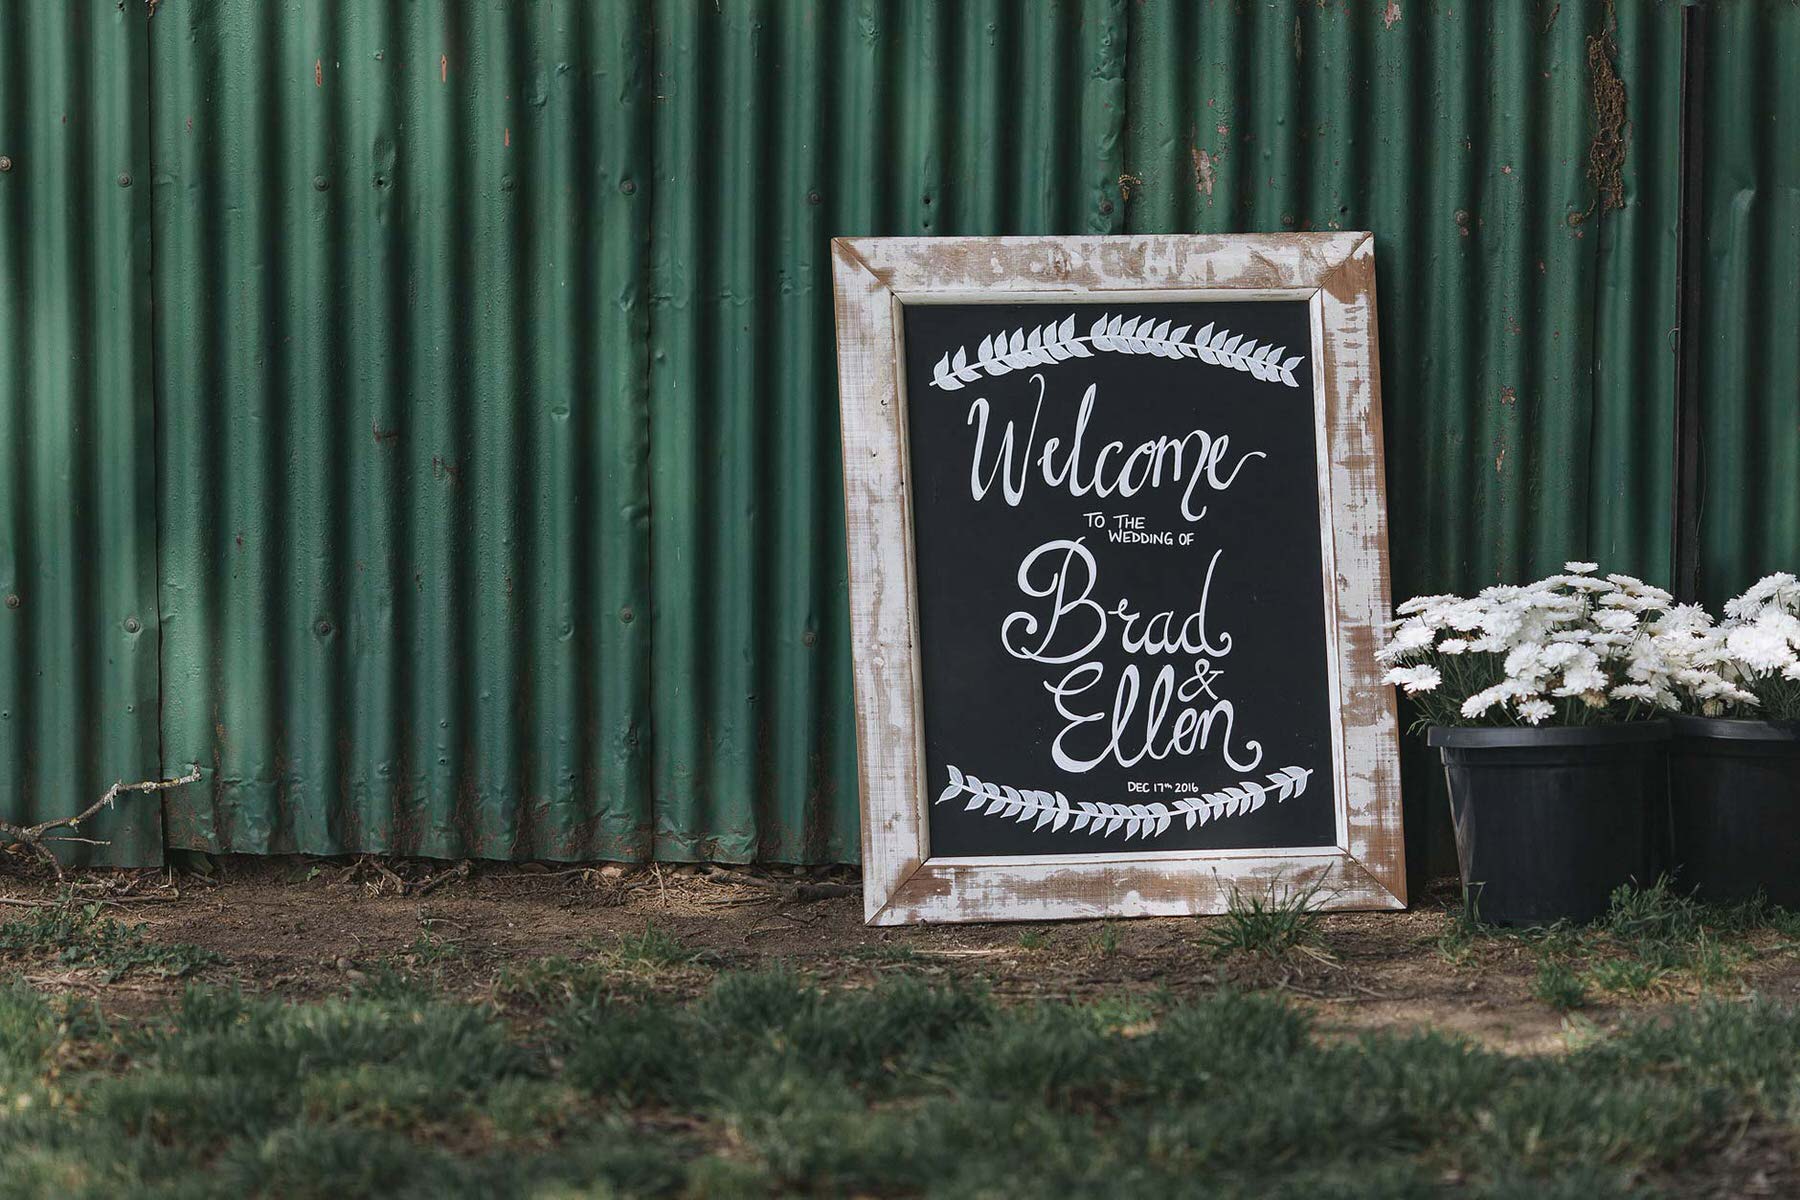 Welcome
TO THE
WEDDING OF
Brad
&
Ellen
DEC 17th 2016